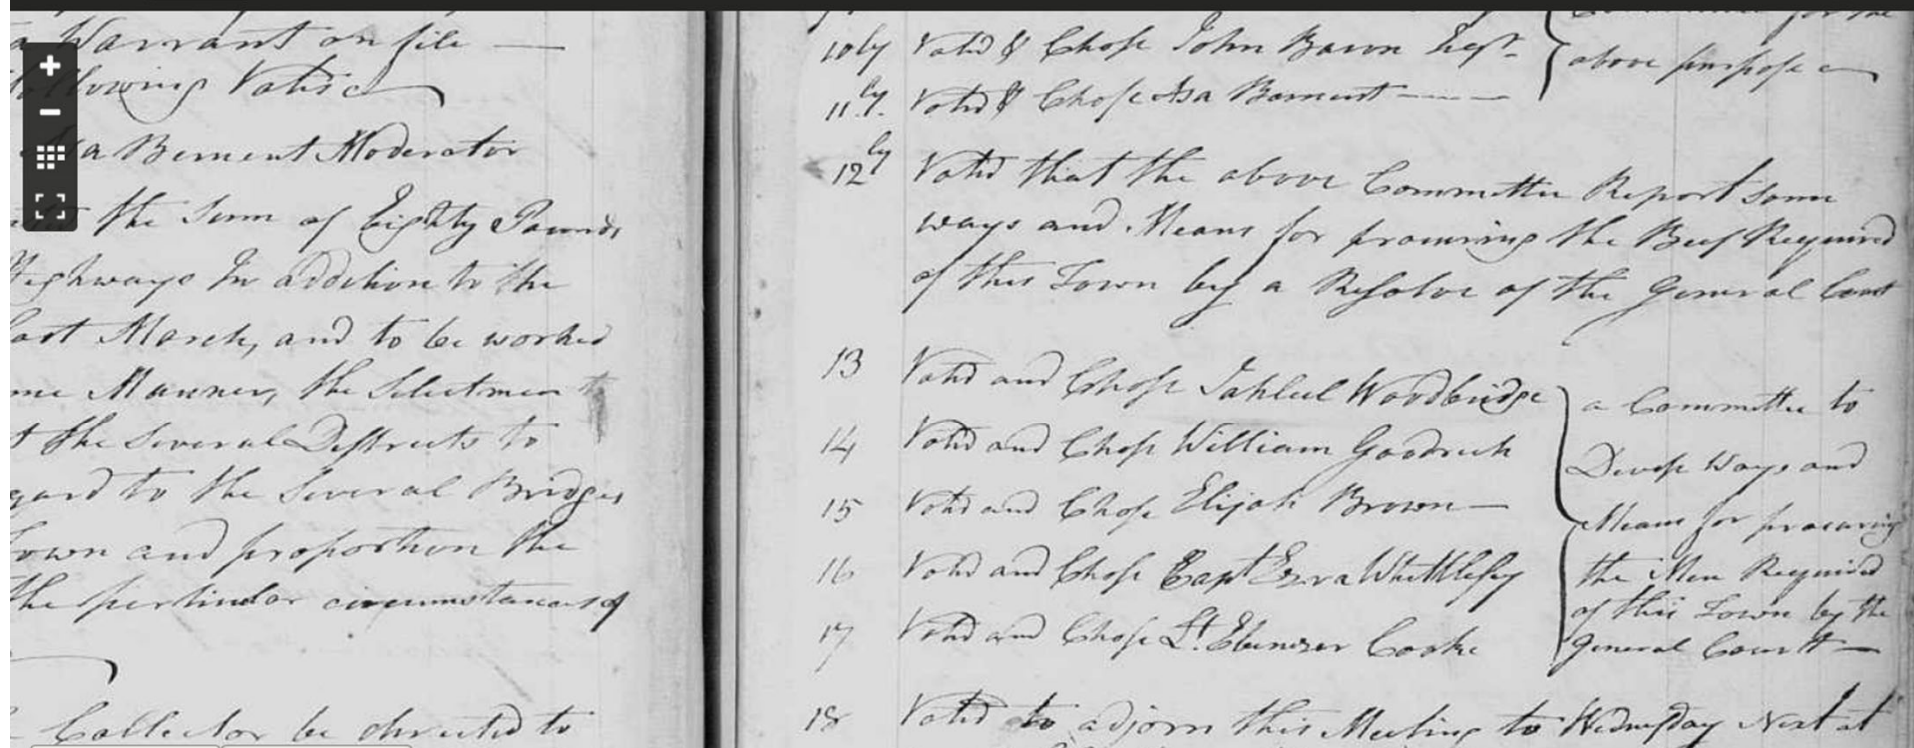 a Warrant on file
following Votes
Bement Moderator
the Sum of Eighty Pounds
Highways In addition to the
last March, and to be worked
Manner, the Selectmen
the several Districts to
to the several Bridges
Town and proportion the
the perticular circumstances of
Collector be directed to
10ly Voted & Chose John Bacon Esqr.
above purpose
11ly Voted & Chose Asa Bement
12ly Voted that the above Committee Report some
ways and Means for procuring the Beef Required
of this Town by a Resolve of the General Court
13 Voted and Chose Jahleel Woodbridge
14 Voted and Chose William Goodrich
15 Voted and Chose Elijah Brown
16 Voted and Chose Capt Ezra Whittlesey
17 Voted and Chose Lt. Ebenezer Cooke
a Committee to
Devise Ways and
Means for procuring
the Men Required
of this Town by the
General Courtt
18 Voted to adjorn this Meeting to Wednesday Next at